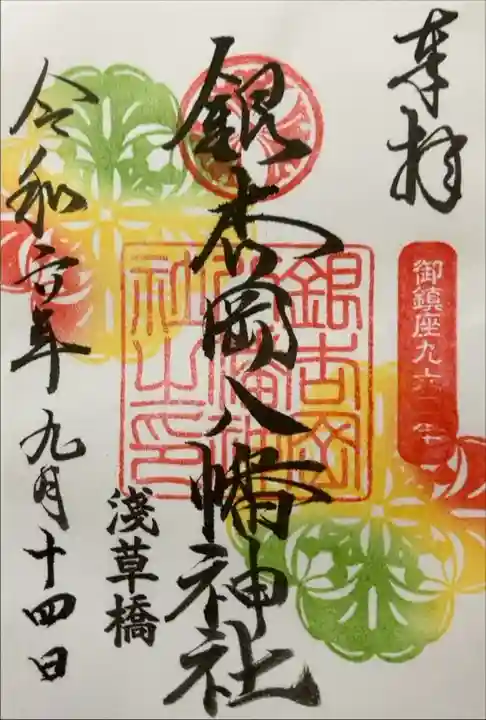 奉拝
御鎮座九六二年
銀杏岡八幡神社
銀杏岡
八幡神
社之印
淺草橋
令和六年九月十四日